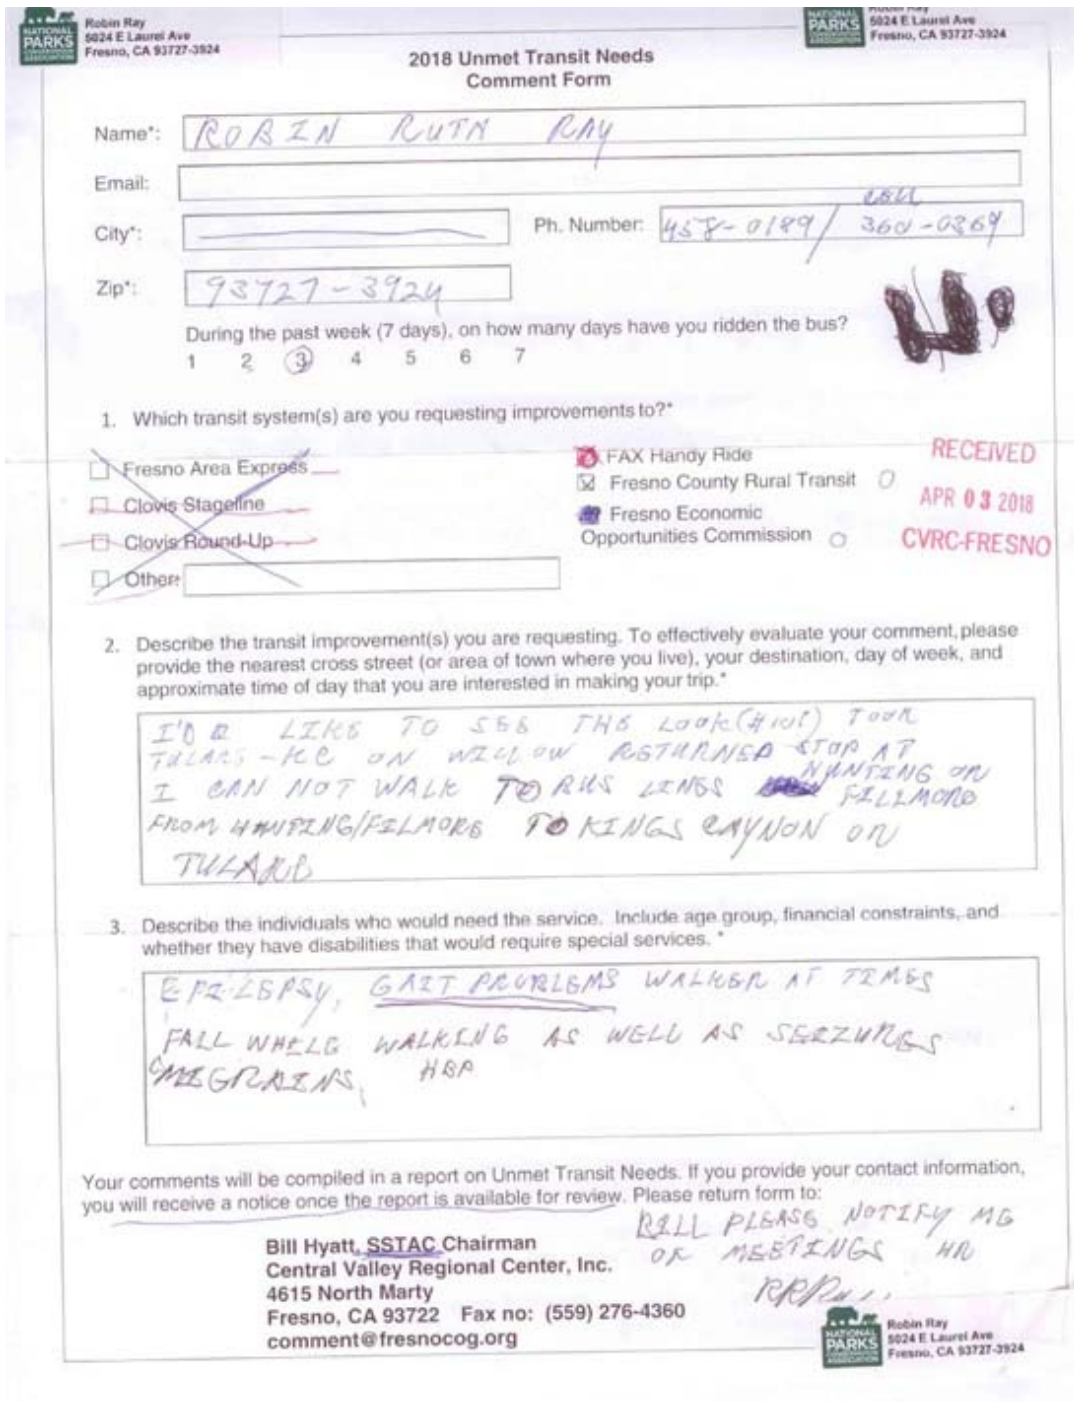 NATIONAL PARKS CONSERVATION ASSOCIATION
Robin Ray
5024 E Laurel Ave
Fresno, CA 93727-3924
NATIONAL PARKS CONSERVATION ASSOCIATION
5024 E Laurel Ave
Fresno, CA 93727-3924
2018 Unmet Transit Needs
Comment Form
Name*: ROBIN RUTH RAY
Email:
City*:
Ph. Number: 458-0189/ CELL 360-0369
Zip*: 93727-3924
During the past week (7 days), on how many days have you ridden the bus?
1 2 3 4 5 6 7
1. Which transit system(s) are you requesting improvements to?*
Fresno Area Express
Clovis Stageline
Clovis Round-Up
Other:
FAX Handy Ride
Fresno County Rural Transit
Fresno Economic
Opportunities Commission
RECEIVED
APR 03 2018
CVRC-FRESNO
2. Describe the transit improvement(s) you are requesting. To effectively evaluate your comment, please
provide the nearest cross street (or area of town where you live), your destination, day of week, and
approximate time of day that you are interested in making your trip.*
I'D LIKE TO SEE THE
ON WILLOW RETURNED STOP AT
I CAN NOT WALK TO BUS LINES HUNTING ON
FILLMORE
FROM HUNTING/FILMORE TO KINGS CAYNON ON
TULARE
3. Describe the individuals who would need the service. Include age group, financial constraints, and
whether they have disabilities that would require special services. *
EPILEPSY, GAIT PROBLEMS WALKER AT TIMES
FALL WHILE WALKING AS WELL AS SEIZURES
MIGRAINS, HBP
Your comments will be compiled in a report on Unmet Transit Needs. If you provide your contact information,
you will receive a notice once the report is available for review. Please return form to:
BILL PLEASE NOTIFY ME
OF MEETINGS
Bill Hyatt, SSTAC Chairman
Central Valley Regional Center, Inc.
4615 North Marty
Fresno, CA 93722 Fax no: (559) 276-4360
comment@fresnocog.org
NATIONAL PARKS CONSERVATION ASSOCIATION
Robin Ray
5024 E Laurel Ave
Fresno, CA 93727-3924